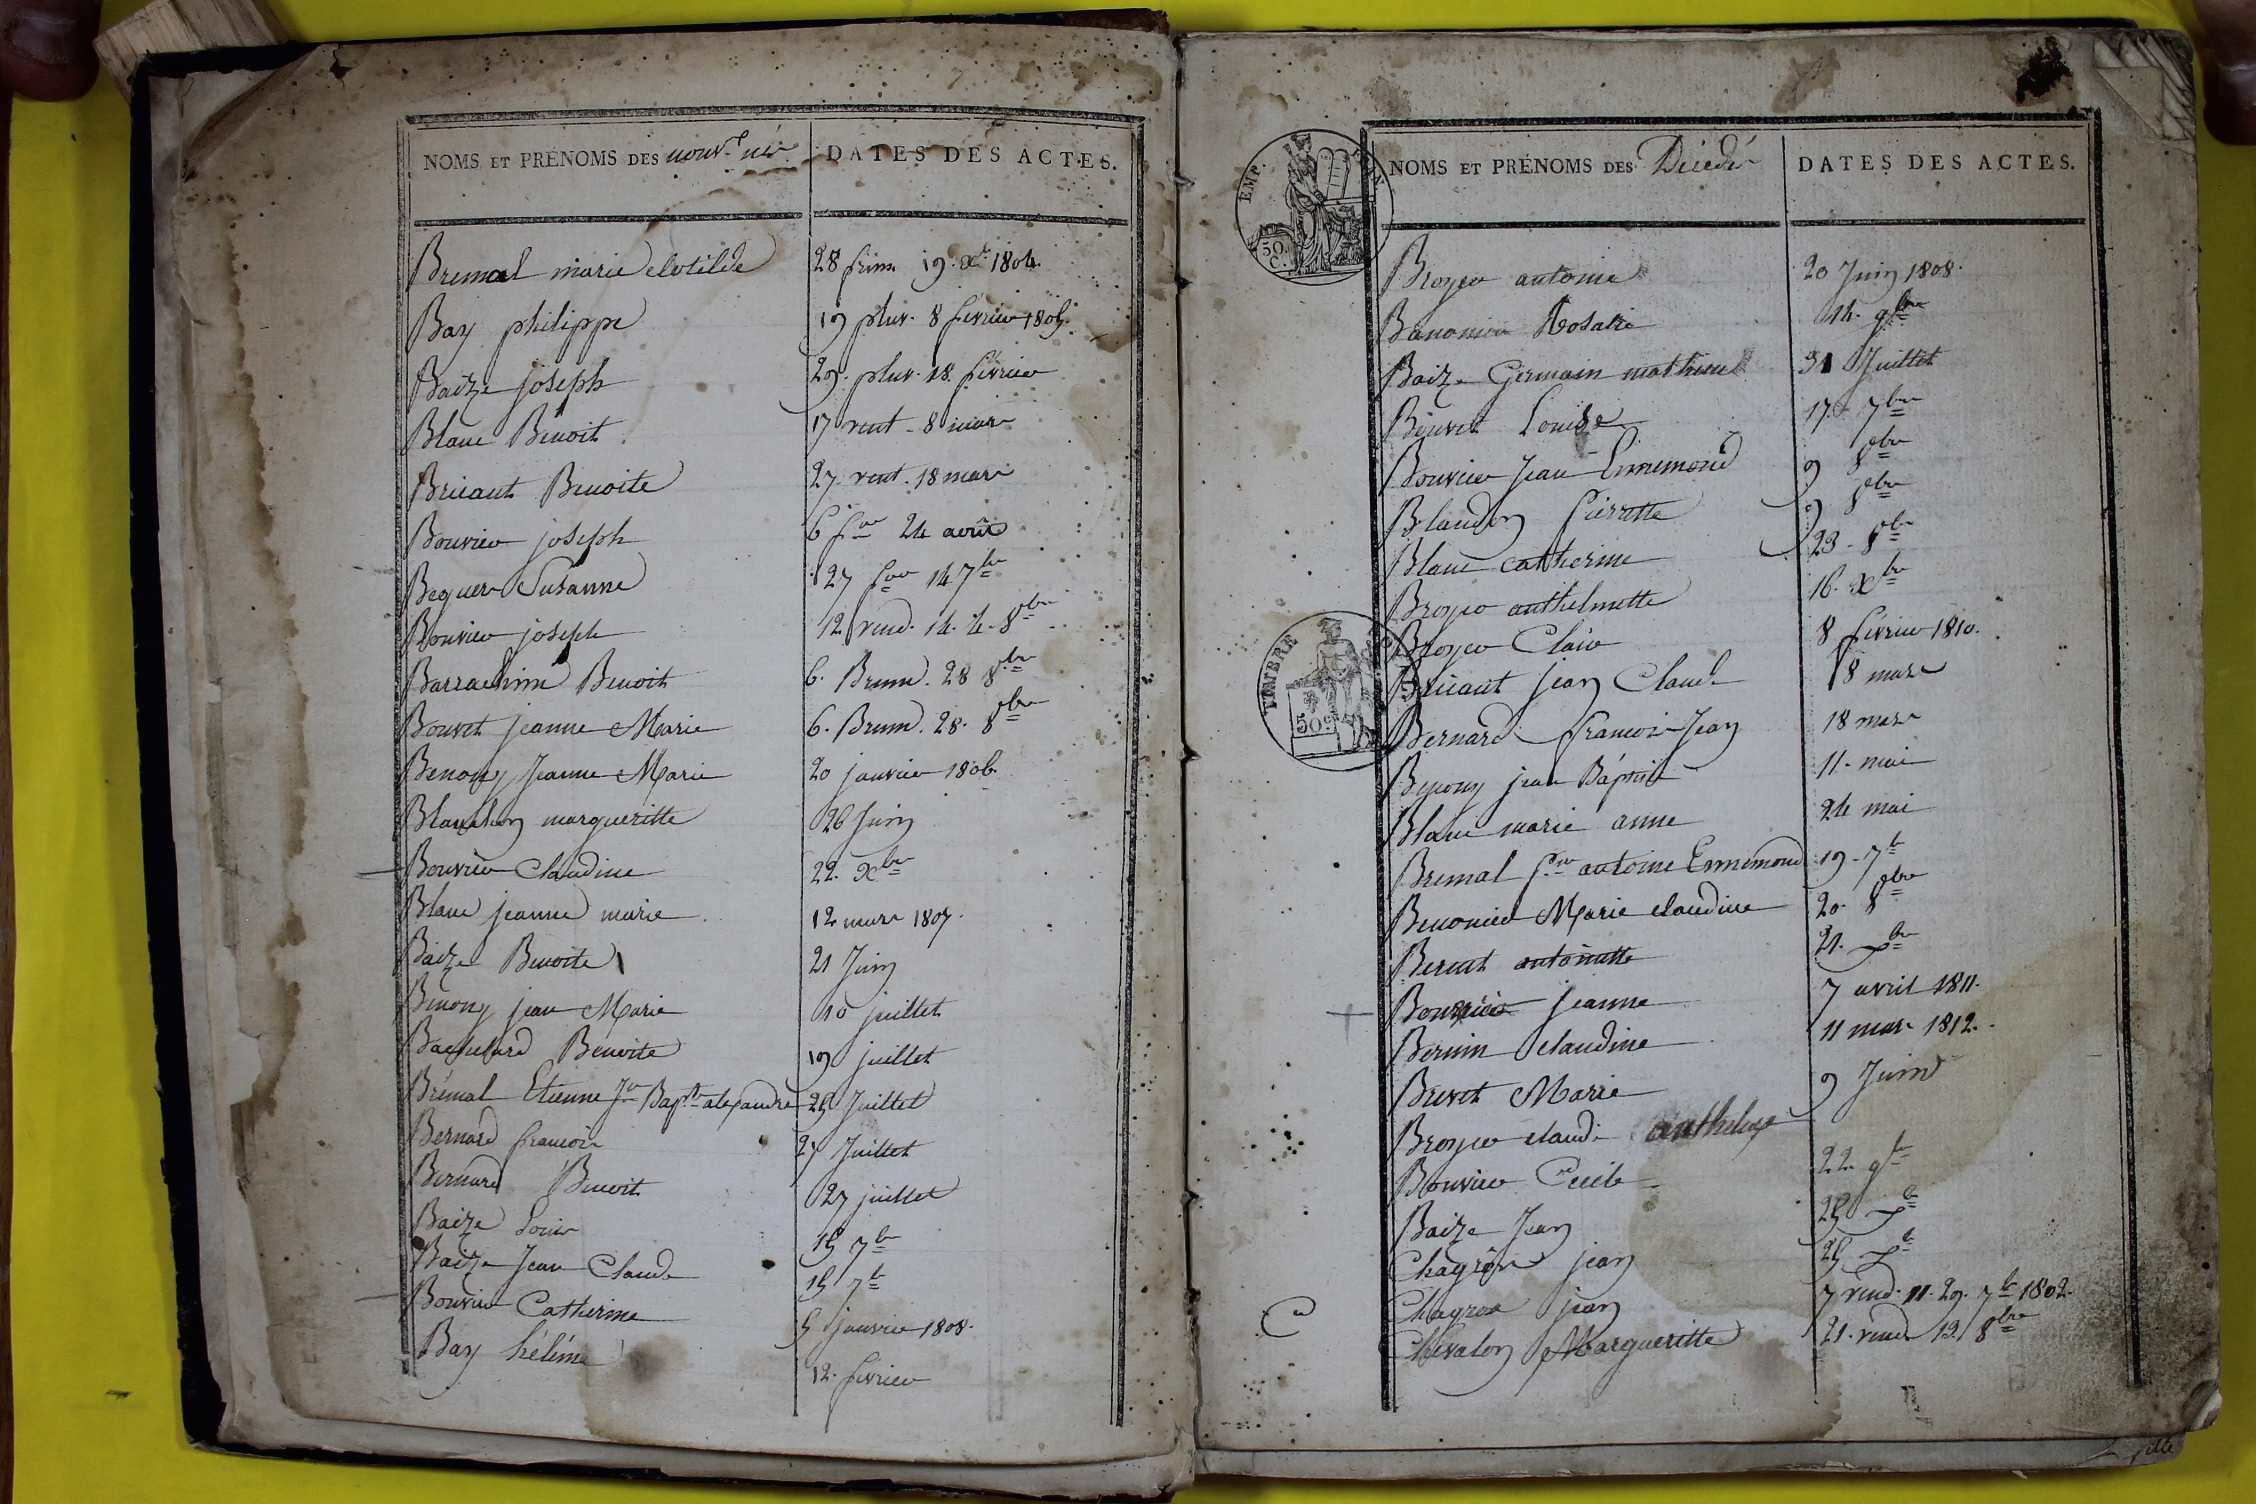 NOMS ET PRÉNOMS DES nouv. nés
DATES DES ACTES.
Bremal marie clotilde 28 frim. 19. Xbre 1804.
Bay philippe 19 pluv. 8 février 1805.
Baize joseph 29. pluv. 18. février
Blanc Benoit 17 vent - 8 mars
Bricaut Benoite 27 vent. 18 mars
Bouvier joseph 6 24 août
Beguer Susanne 27 14 7bre
Bouvier joseph 12 vend. 8bre
Benoit 6. Brum. 28 8bre
Bouvet jeanne Marie 6. Brum. 28. 8bre
Benony Jeanne Marie 20 janvier 1806.
Blanchon margueritte 26 Juin
Bouvier Claudine 22. Xbre
Blanc jeanne marie 12 mars 1807.
Baize Benoite 21 Juin
Benony jean Marie 10 juillet
Benoite 19 juillet
Brémal Etienne Jn Bapte alexandre 25 Juillet
Bernard francois 27 Juillet
Bernard Benoit 27 juillet
Baize Louis 15 7bre
Baize Jean Claude 15 7b
Bouvier Catherine 5 janvier 1808.
Bay héléne 12. février
EMP. FRAN.
50 C.
NOMS ET PRÉNOMS DES Décédés
DATES DES ACTES.
Broyer antoine 20 Juin 1808.
Rosalie 14. 9bre
Baize Germain mathieu 31 Juillet
Bouvet Louise 17 7bre
Bouvier Jean Ennemond 9 8bre
Blandon Pierrette 9 8bre
Blanc catherine 23 - 8bre
Broyer anthelmette 16. Xbre
Broyer Claire 8 février 1810.
TIMBRE
50 C
Bricaut jean Claude 8 mars
Bernard francois Jean 18 mars
Benony jean Baptiste 11. mai
Blanc marie anne 24 mai
Bremal antoine Ennemond 19 - 7b
Benonier Marie claudine 20. 8bre
antoinette 21. Xbre
Bouvier jeanne 7 avril 1811.
Bernin claudine 11 mars 1812.
Marie 9 Juin
Broyer claude anthelme
Bouvier Cecile 22 9b
Baize Jean 25 Xb
Chagron jean 25 Xb
Chagron jean 7 vend. 11. 29. 7b 1802.
Chevalon Margueritte 21. vend. 13. 8bre